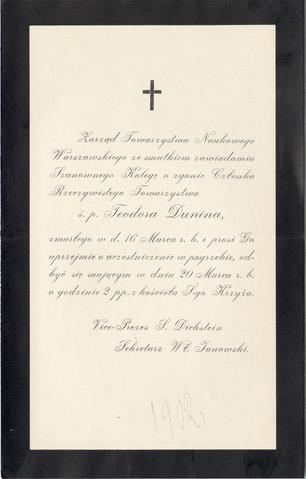 Zarząd Towarzystwa Naukowego
Warszawskiego ze smutkiem zawiadamia
Szanownego Kolegę o zgonie Członka
Rzeczywistego Towarzystwa
ś. p. Teodora Dunina,
zmarłego w d. 16 Marca r. b. i prosi Go
uprzejmie o uczestniczenie w pogrzebie, od-
być się mającym w dniu 20 Marca r. b.
o godzinie 2 pp. z kościoła S-go Krzyża.
Vice-Prezes S. Dickstein
Sekretarz Wł. Janowski.